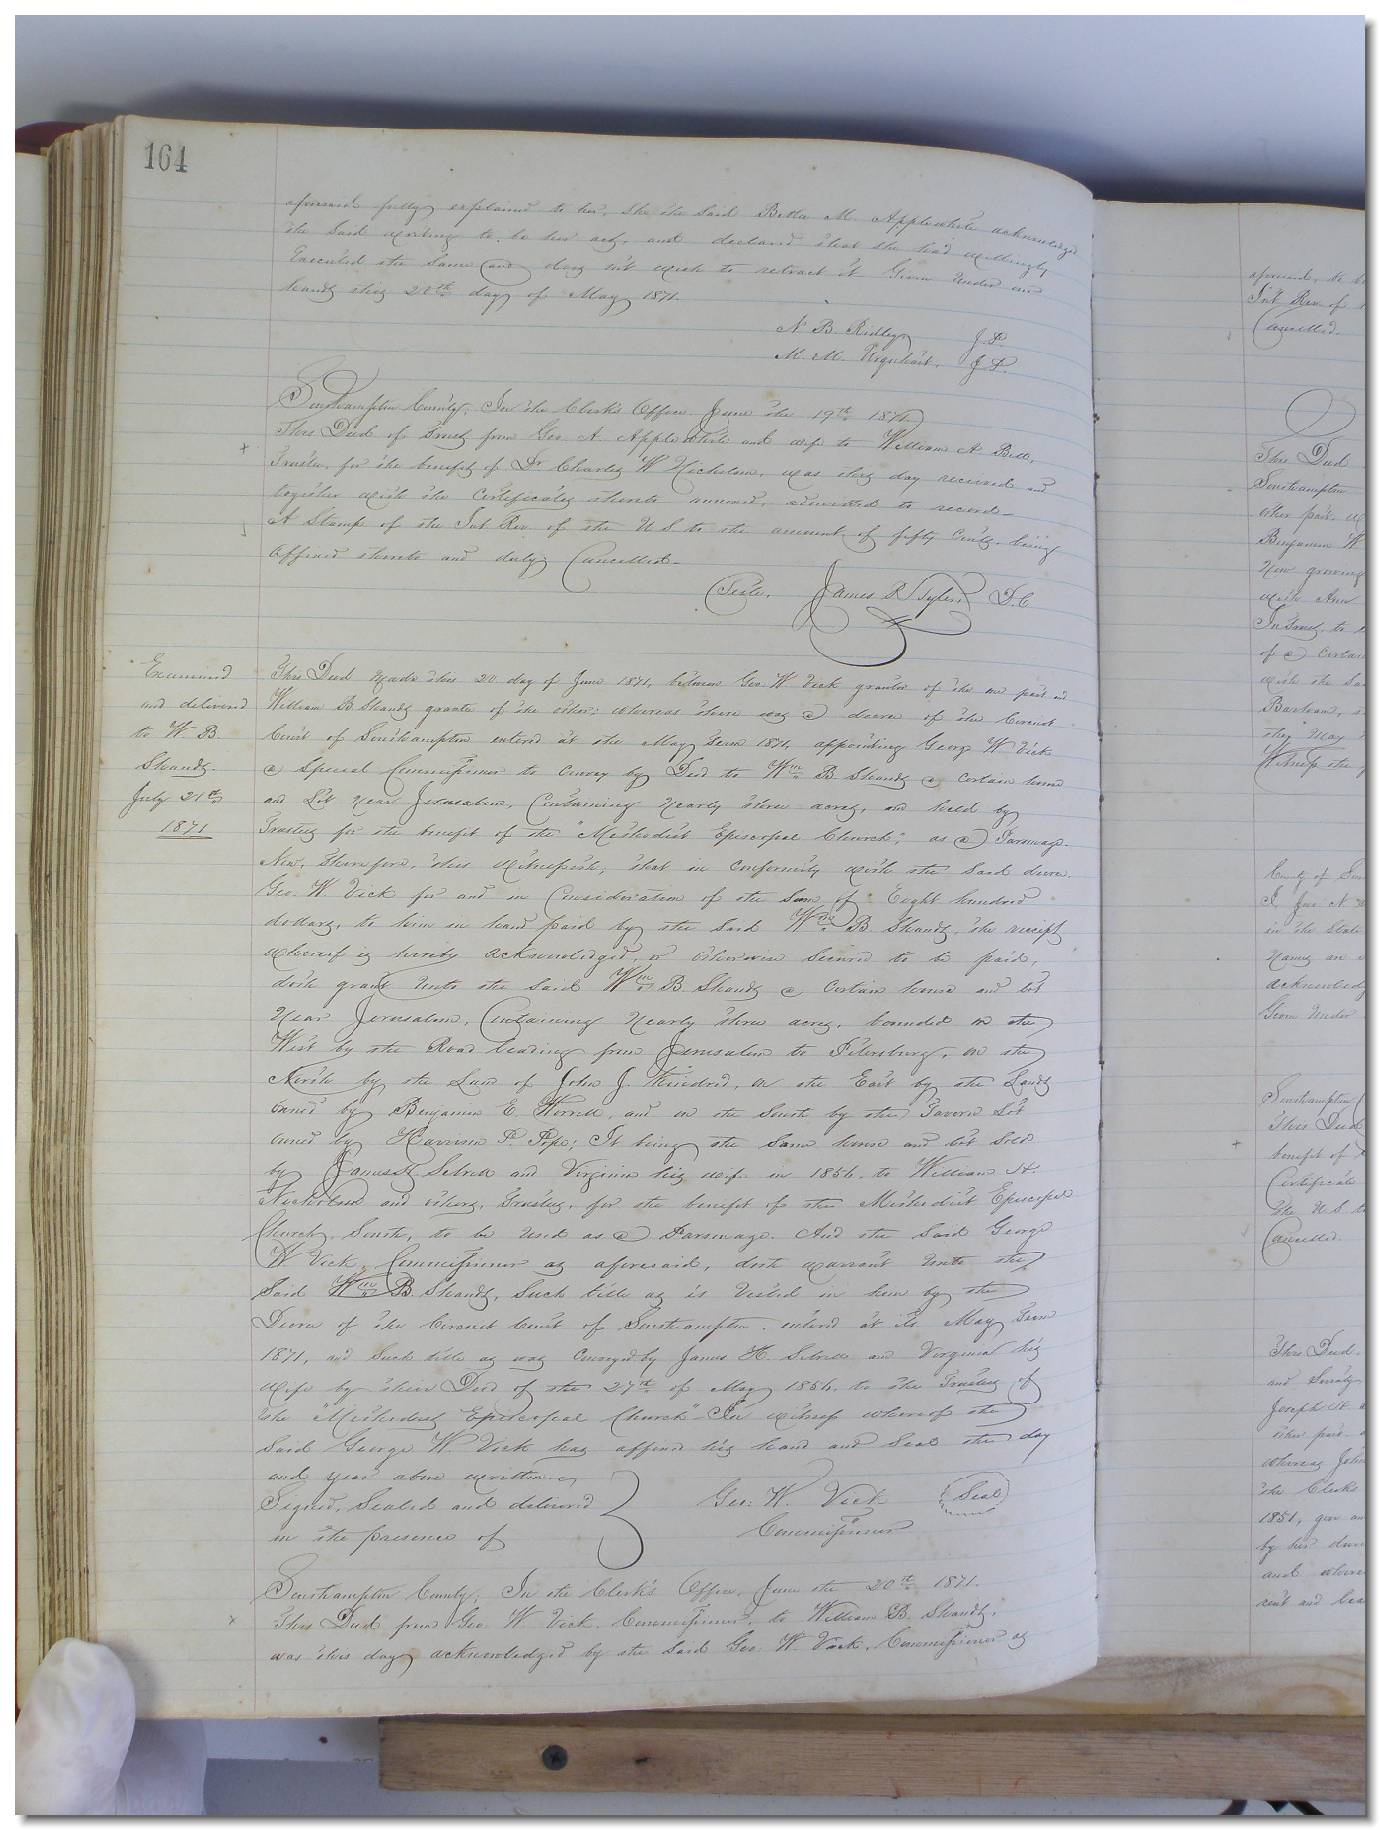 164
aforesaid fully explained to her, she the said Betta M. Applewhite acknowledged
the said writing to be her act, and declared that she had willingly
Executed the same and does not wish to retract it Given under our
hands this 20th day of May 1871.
N. B. Ridley J.P.
M. M. Urquhart. J.P.
Southampton County; In the Clerk's Office June the 19th 1871.
This Deed of Trust from Geo. A. Applewhite and wife to William A. Bell,
Trustee, for the benefit of Dr Charles W Nicholson, was this day received and
together with the Certificates thereto annexed, admitted to record-
A Stamp of the Int Rev. of the U S to the amount of fifty Cents, being
affixed thereto and duly Cancelled-
Teste, James R Tyler, D.C
Examined
and delivered
to W. B
Shands.
July 21st
1871
This Deed made this 20 day of June 1871, between Geo. W Vick grantor of the one part and
William B Shands grantee of the other; whereas there was a decree of the Circuit
Court of Southampton entered at the May Term 1871, appointing George W Vick
a Special Commissioner to convey by Deed to Wm B Shands a certain house
and Lot near Jerusalem, Containing nearly three acres, and held by
Trustees for the benefit of the "Methodist Episcopal Church", as a Parsonage.
Now, Therefore, this witnesseth, that in conformity with the said decree.
Geo. W Vick for and in Consideration of the sum of Eight hundred
dollars, to him in hand paid by the said Wm B. Shands, the receipt
whereof is hereby acknowledged, or otherwise secured to be paid,
doth grant unto the said Wm B. Shands a certain house and lot
near Jerusalem, Containing nearly three acres, bounded on the
West by the Road leading from Jerusalem to Petersburg, on the
North by the Land of John J. Kindred, on the East by the Lands
owned by Benjamin E. Worrell, and on the South by the Tavern Lot
owned by Harrison P. Pope; It being the same house and lot sold
by James H Sebrell and Virginia his wife in 1856, to William H
Nicholson and others, Trustees, for the benefit of the Methodist Episcopal
Church, South, to be used as a Parsonage. And the said George
W Vick, Commissioner as aforesaid, doth warrant unto the
said Wm B. Shands, such title as is Vested in him by the
Decree of the Circuit Court of Southampton entered at its May Term
1871, and such title as was conveyed by James H. Sebrell and Virginia his
wife by their Deed of the 27th of May 1856, to the Trustees of
the "Methodist Episcopal Church" In witness whereof the
said George W. Vick has affixed his hand and seal the day
and year above written.
Signed, Sealed and delivered
in the presence of
Geo. W. Vick (Seal)
Commissioner
Southampton County; In the Clerk's Office, June the 20th 1871.
This Deed from Geo. W. Vick, Commissioner, to William B. Shands,
was this day acknowledged by the said Geo. W. Vick, Commissioner as
Int Rev. of
Cancelled.
This Deed
Southampton
Benjamin W
Now growing
with Ann
In Trust, to
of a certain
with the
Barham,
this May
Witness the
County of
in the State
acknowledg
Given under
Southampton
This Deed
benefit of
Certificate
the U S
Cancelled.
This Deed.
and
Joseph H
other part
whereas John
the Clerks
1851,
by his
and where
rent and